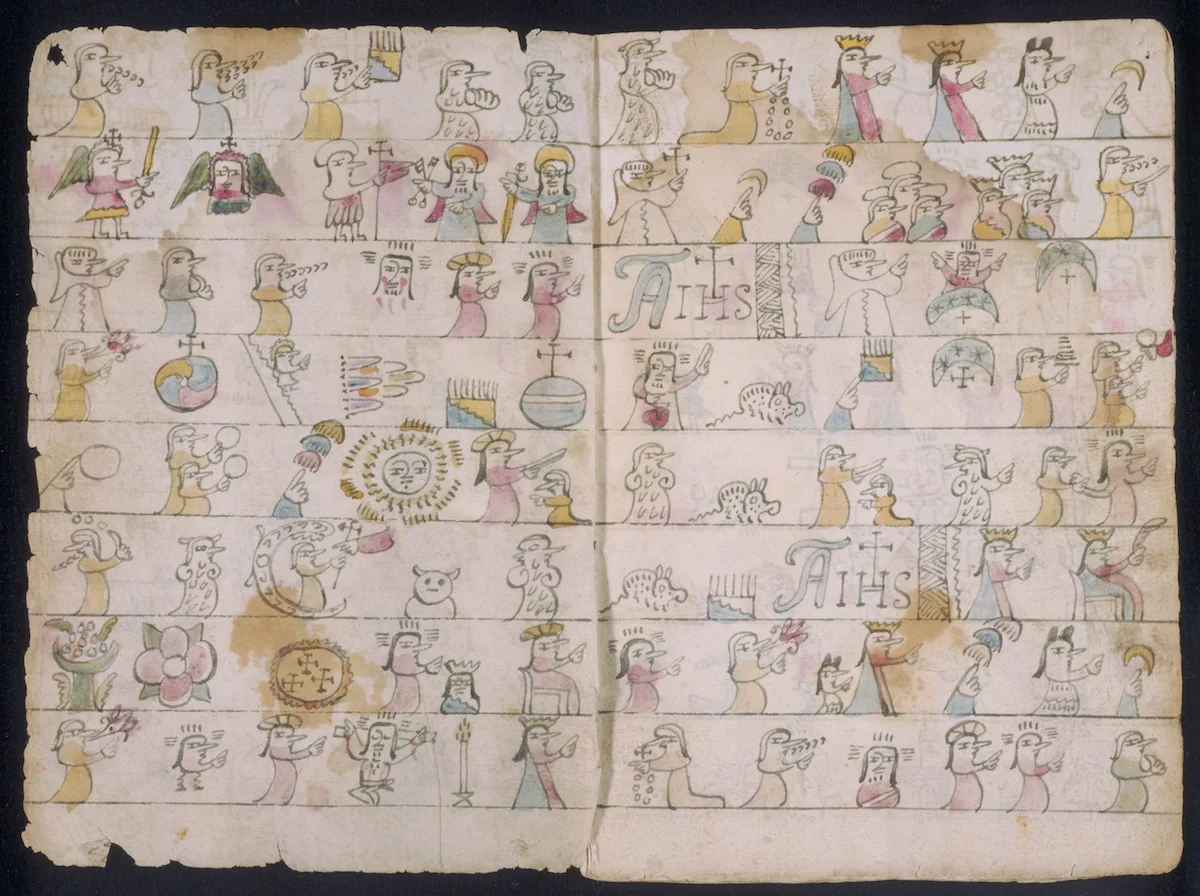 A IHS
A IHS